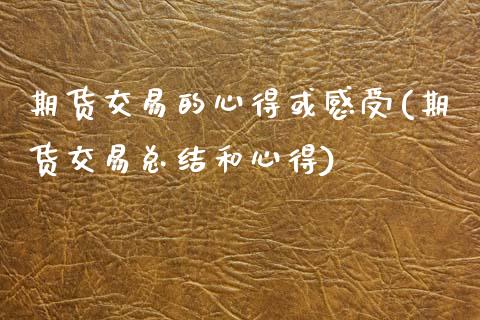 期货交易的心得或感受(期
货交易总结和心得)